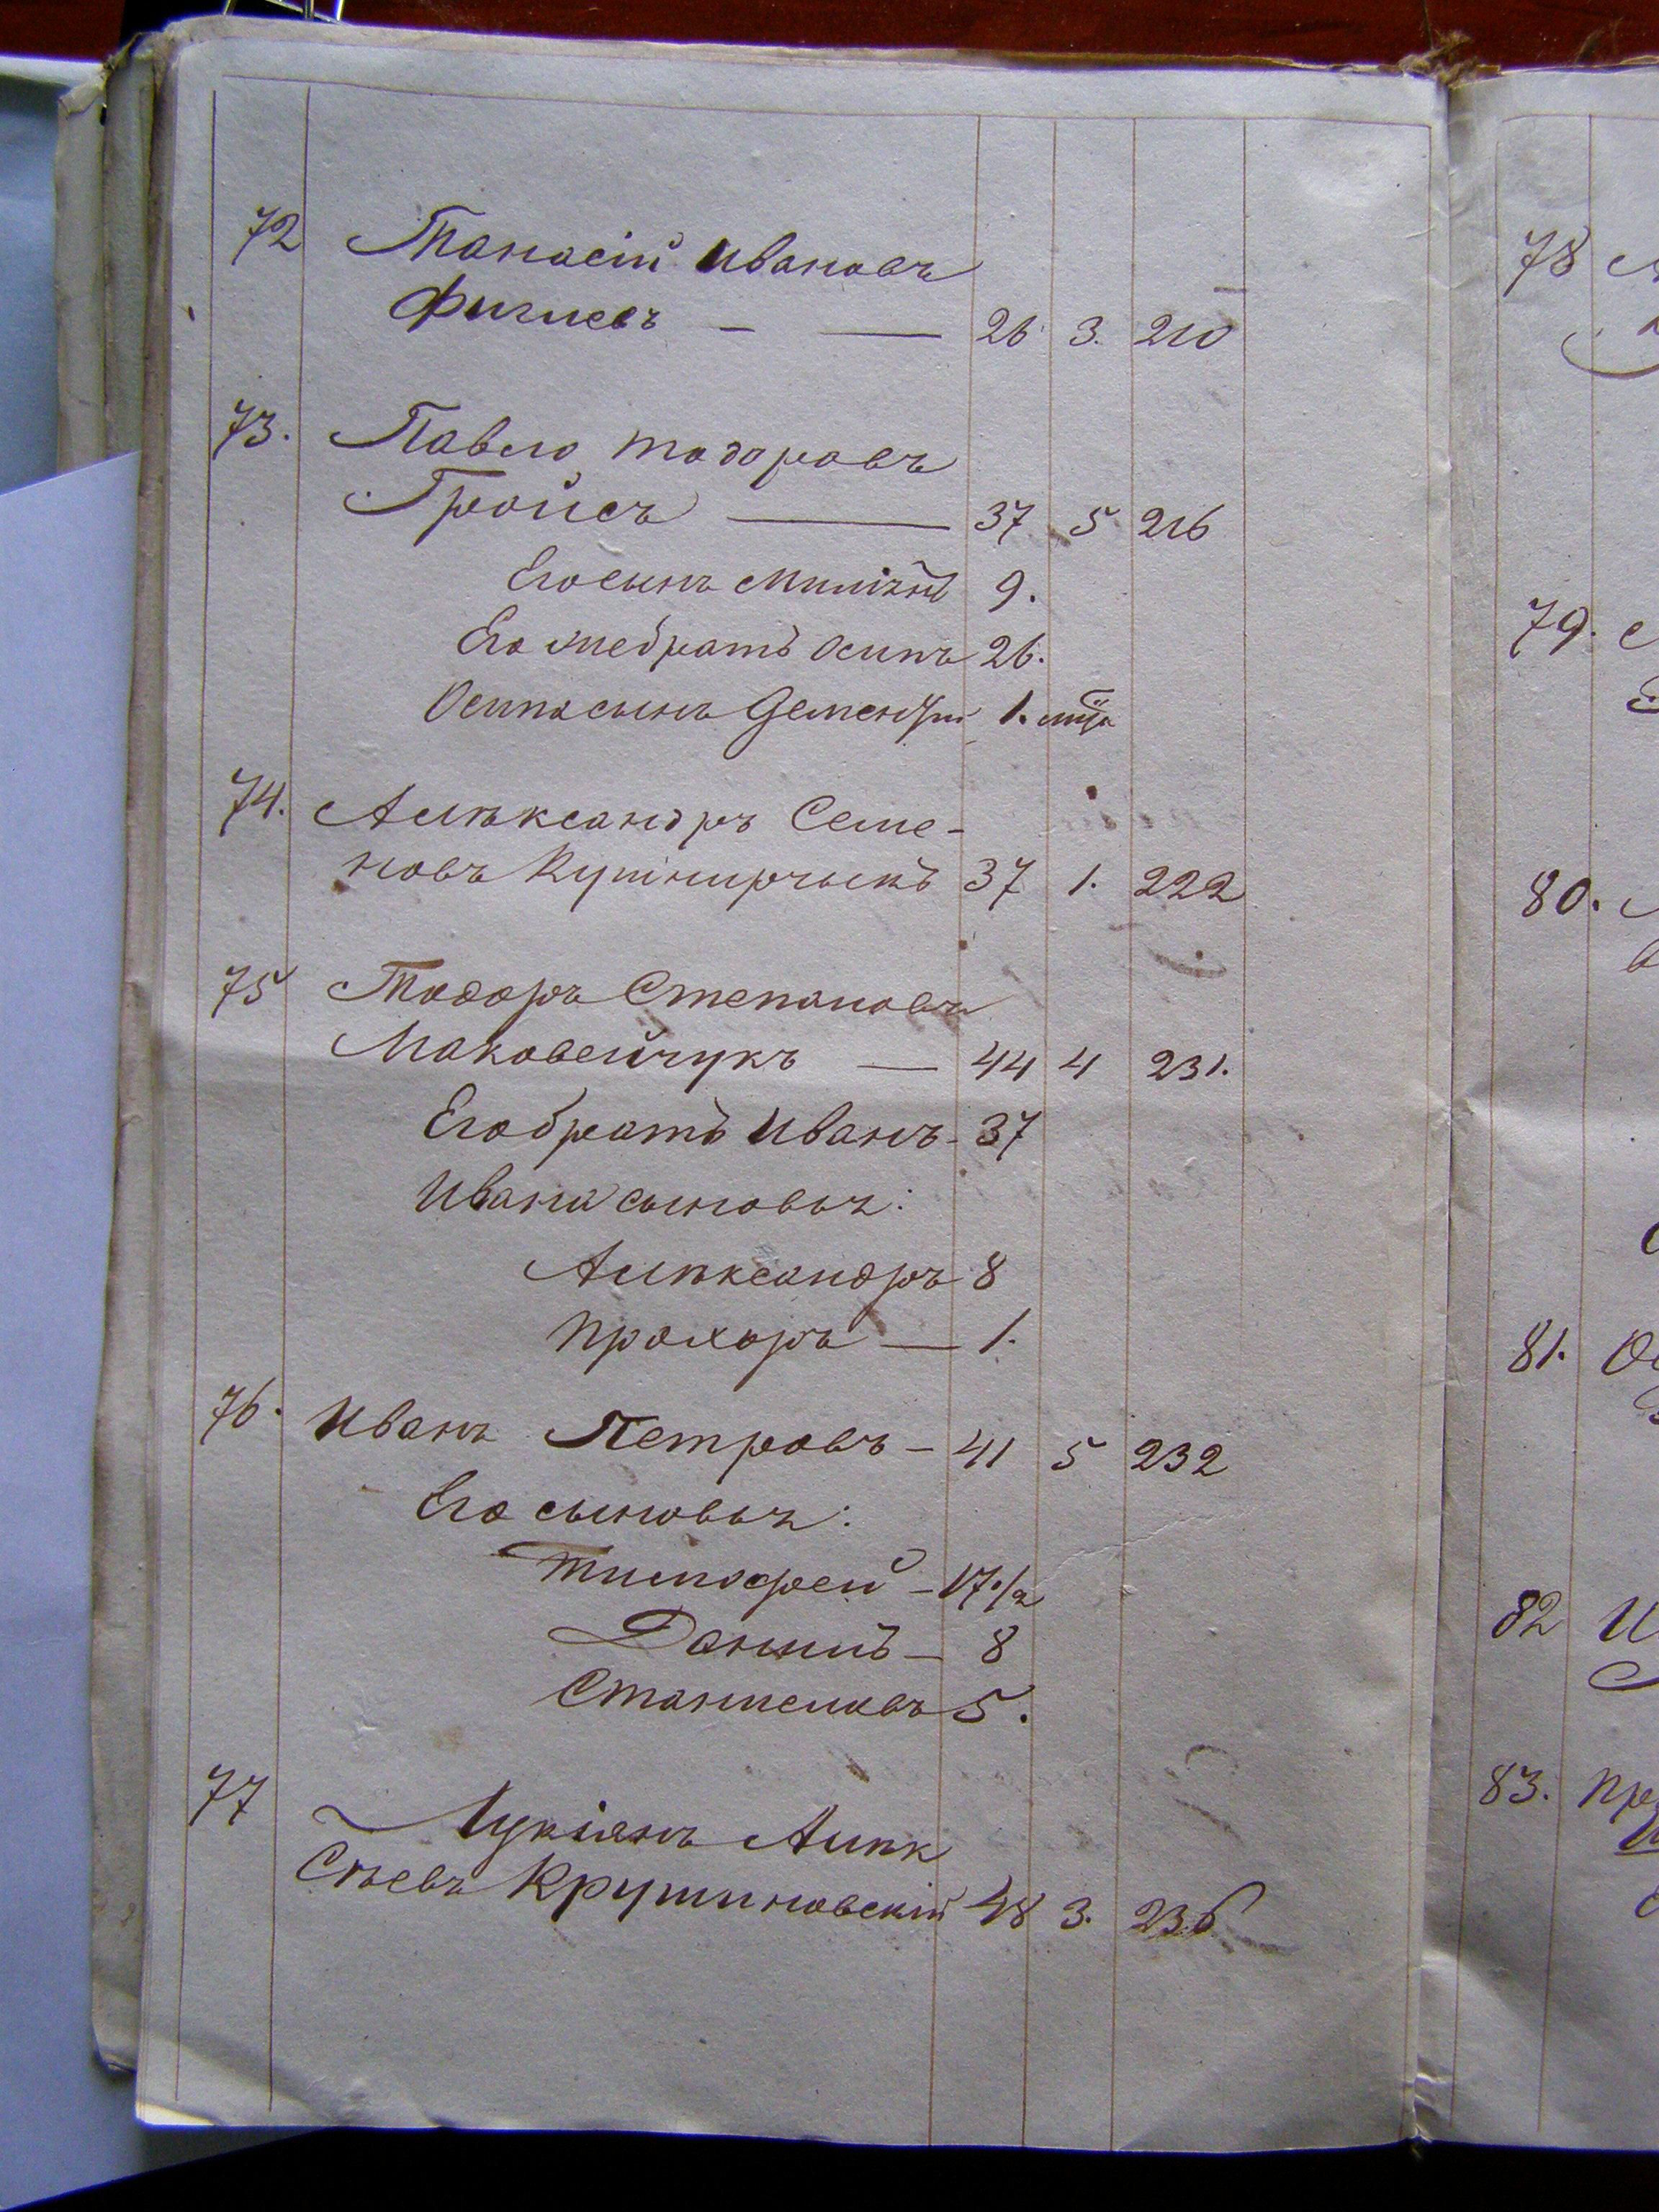 72 Танасій Ивановъ
Фигиевъ — — 26 3. 210
73. Павло Тодоровъ
Гройсъ — 37 5 216
Его сынъ 9.
Его же братъ Осипъ 26.
Осипа сынъ 1.
74. Алѣксандръ Семе-
новъ Кушнирчыкъ 37 1. 222
75 Тодоръ Степановъ
Маковейчукъ — 44 4 231.
Его братъ Иванъ - 37
Ивана сыновья:
Алѣксандръ 8
Прохоръ — 1.
76. Иванъ Петровъ — 41 5 232
Его сыновья:
Тимофей — 17 1/2
Данилъ — 8
5.
77
Лукіянъ Алѣк
сѣевъ Крушиновскій 48 3. 236
78
79.
80.
81.
82
83.